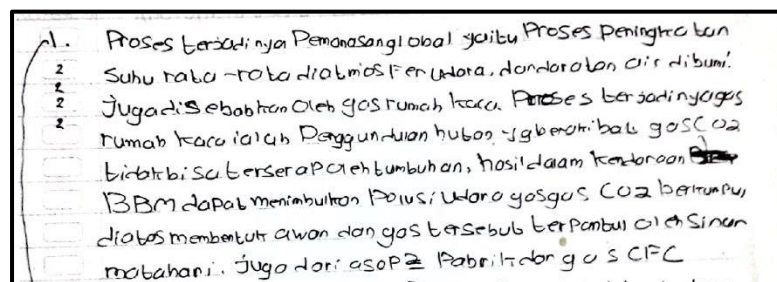 1. Proses terjadinya Pemanasanglobal yaitu Proses peningkatan
2 Suhu rata-rata diatmosfer udara, dandaratan air dibumi.
2
2 Jugadisebabkan oleh gas rumah kaca. Proses terjadinyagas
2 rumah kaca ialah Penggundulan hutan yg berakibat gas CO2
tidakbisa terserap oleh tumbuhan, hasil dalam kendaraan
BBM dapat menimbulkan Polusi udara gasgas CO2 berkumpul
diatas membentuk awan dan gas tersebut terpantul oleh Sinar
matahari. Juga dari asap2 Pabrik dan gas CFC